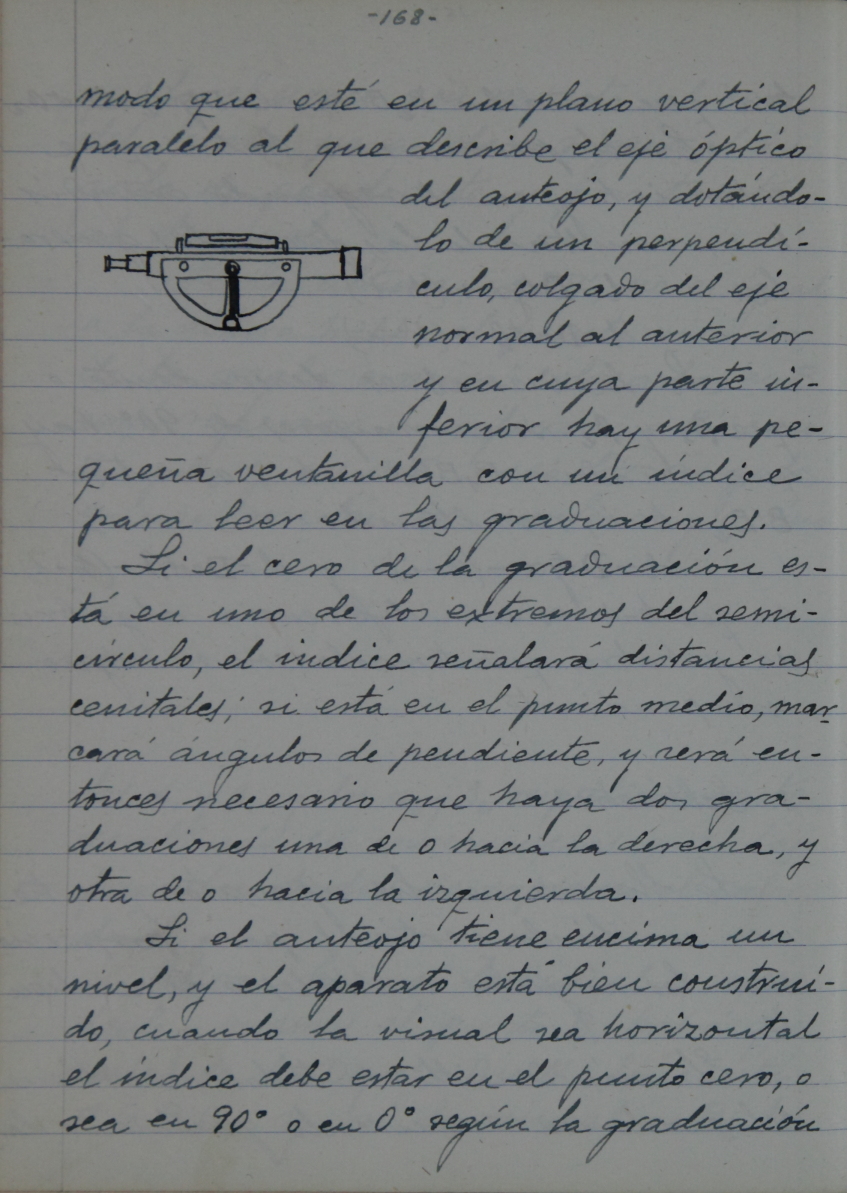 -168-
modo que esté en un plano vertical
paralelo al que describe el eje óptico
del anteojo, y dotándo-
lo de un perpendí-
culo, colgado del eje
normal al anterior
y en cuya parte in-
ferior hay una pe-
queña ventanilla con un índice
para leer en las graduaciones.
Si el cero de la graduación es-
tá en uno de los extremos del semi-
círculo, el indice señalará distancias
cenitales; si está en el punto medio, mar
cará ángulos de pendiente, y será en-
tonces necesario que haya dos gra-
duaciones una de 0 hacia la derecha, y
otra de 0 hacia la izquierda.
Si el anteojo tiene encima un
nivel, y el aparato está bien construí-
do, cuando la visual sea horizontal
el índice debe estar en el punto cero, o
sea en 90° o en 0° según la graduación